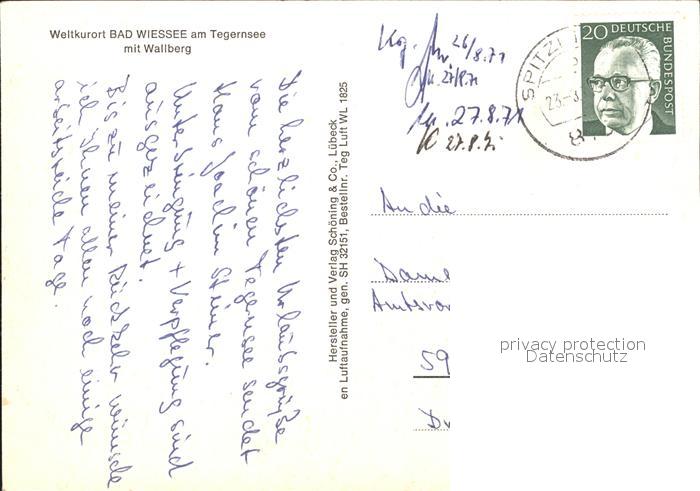 Weltkurort BAD WIESSEE am Tegernsee
mit Wallberg
Die herzlichsten Urlaubsgrüße
vom schönen Tegernsee sendet
Hans Joachim
Unterbringung + Verpflegung sind
ausgezeichnet.
Bis zu meiner Rückkehr wünsche
ich Ihnen allen noch einige
arbeitsreiche Tage.
Hersteller und Verlag Schöning & Co., Lübeck
en Luftaufnahme, gen. SH 32151, Bestellnr. Teg Luft WL 1825
26/8.71
27/8.71
27.8.71
27.8.
SPITZI
23-8
8
20 DEUTSCHE
BUNDESPOST
An die
Dame
Amtsvor
59
privacy protection
Datenschutz